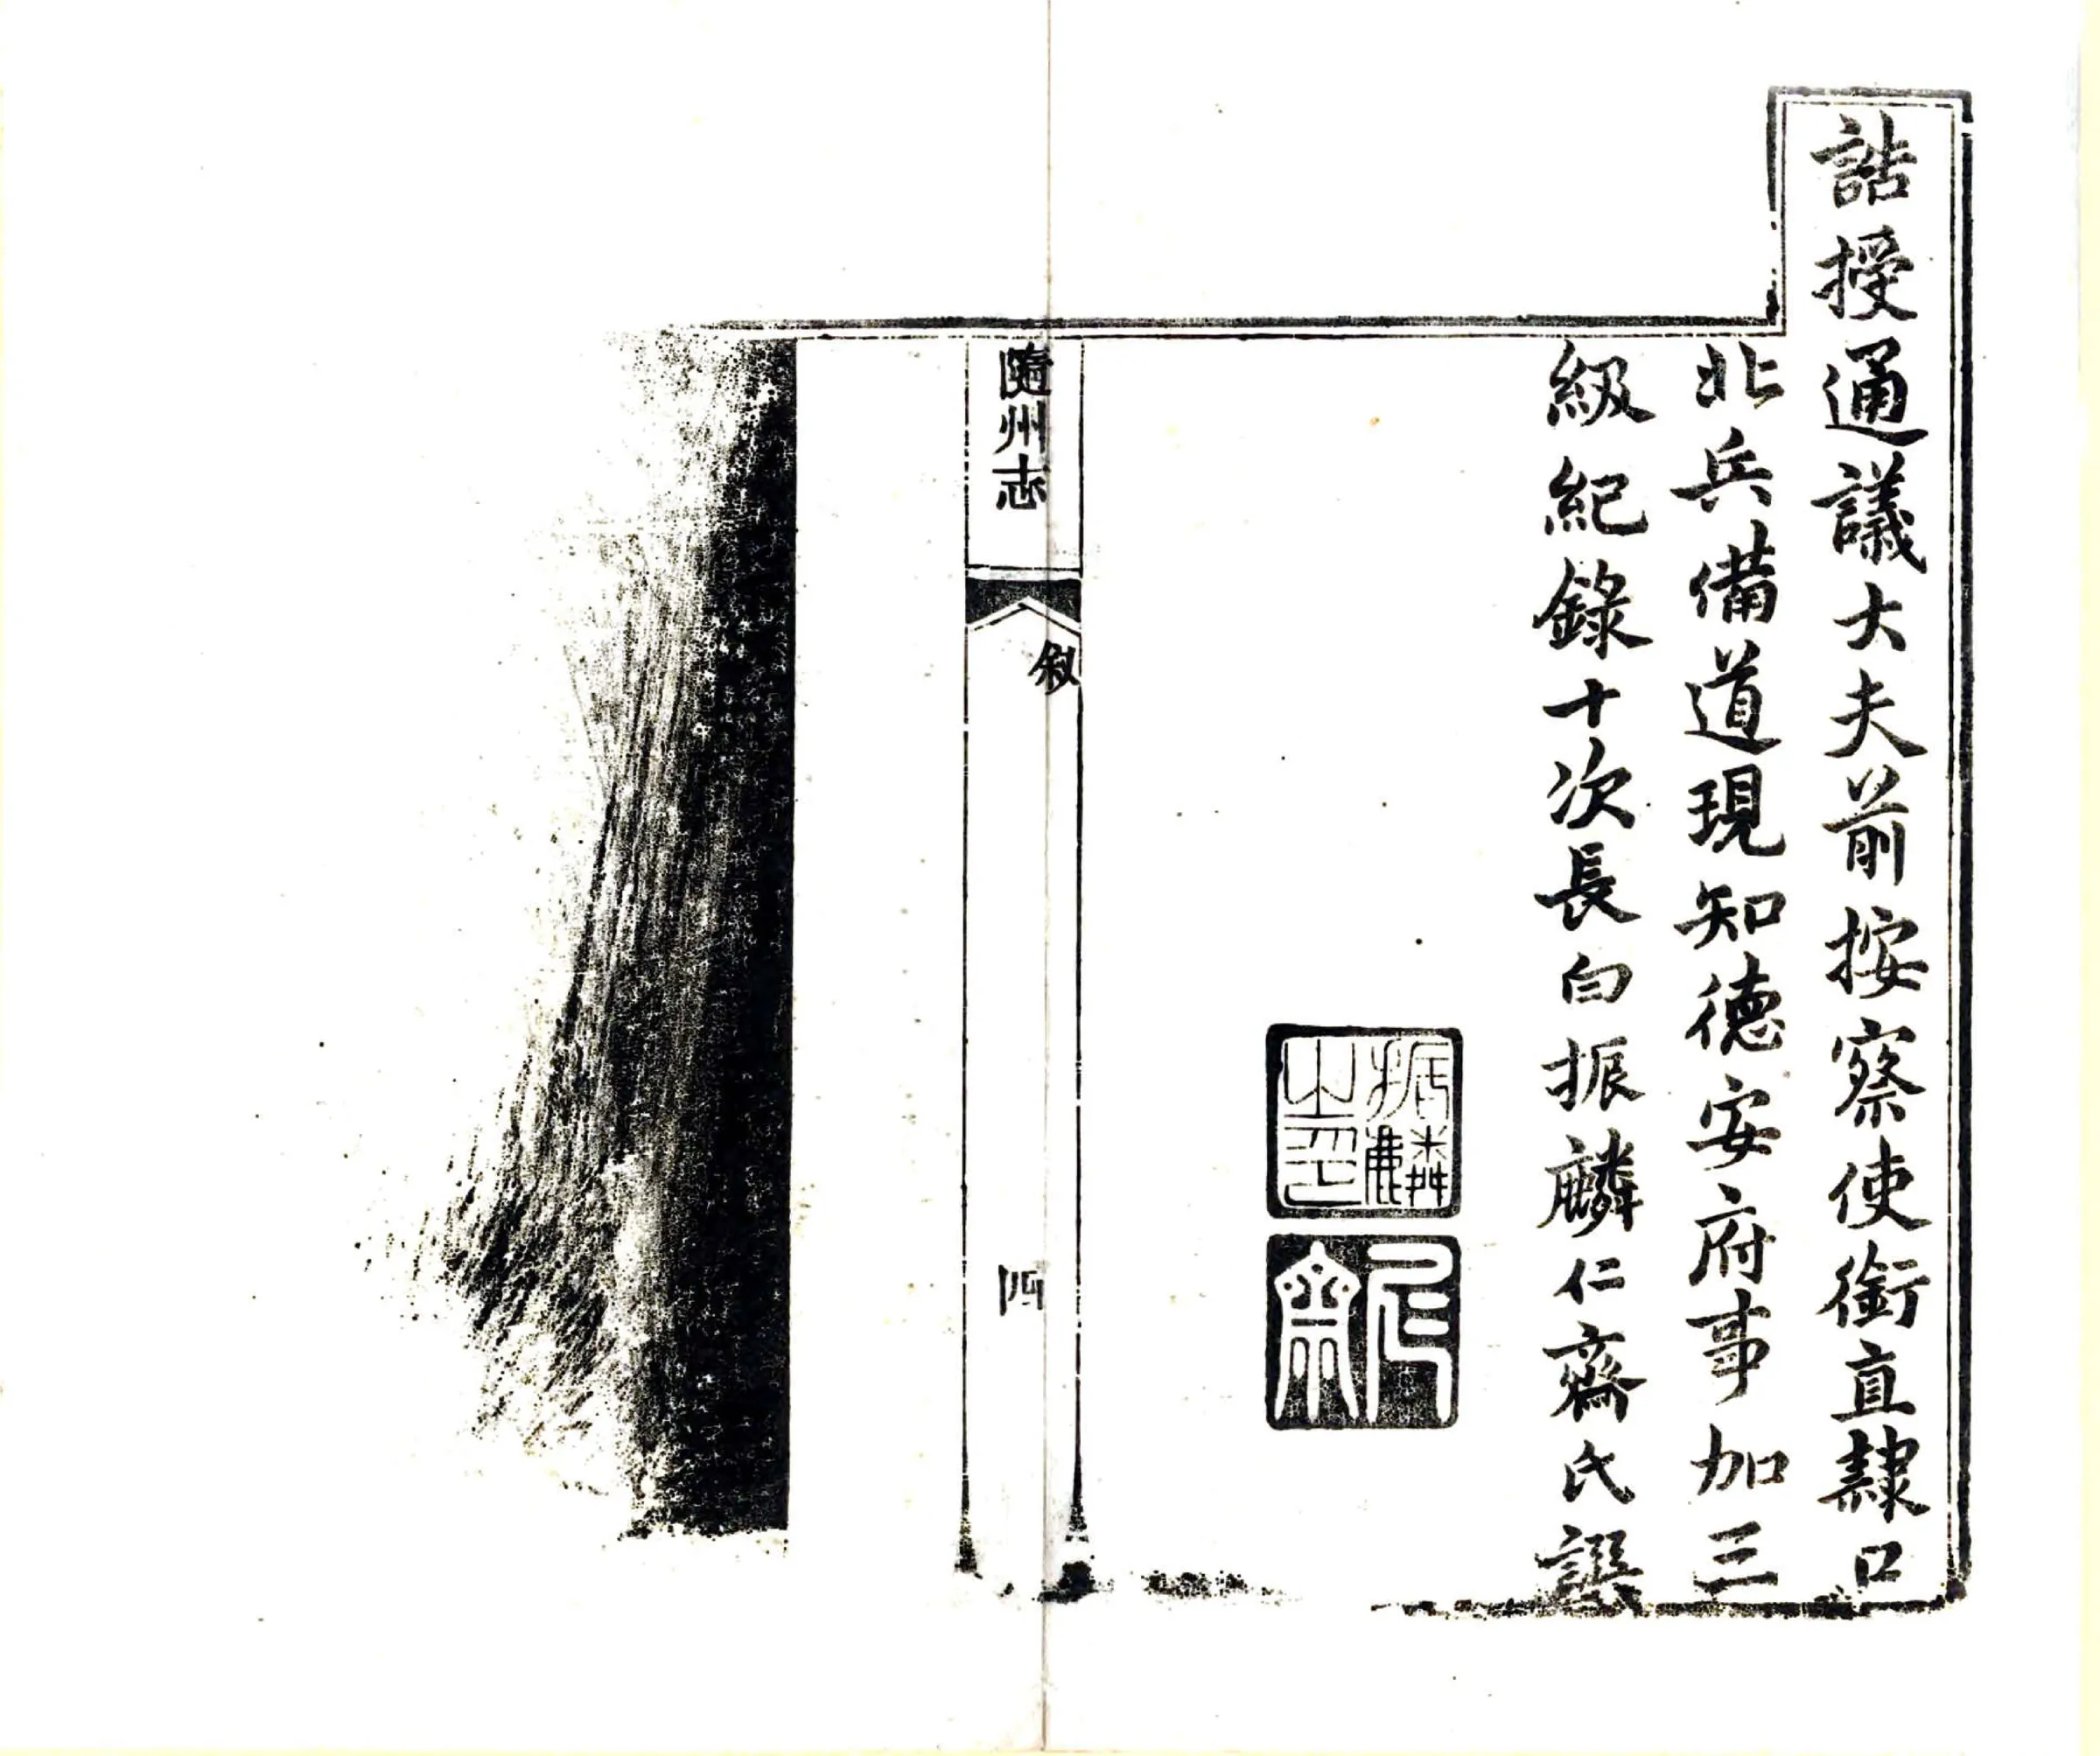 誥授通議大夫前按察使銜直隸口
北兵備道現知德安府事加三
級紀錄十次長白振麟仁齋氏譔
振麟
之印
仁
齋
隨州志
敘
四